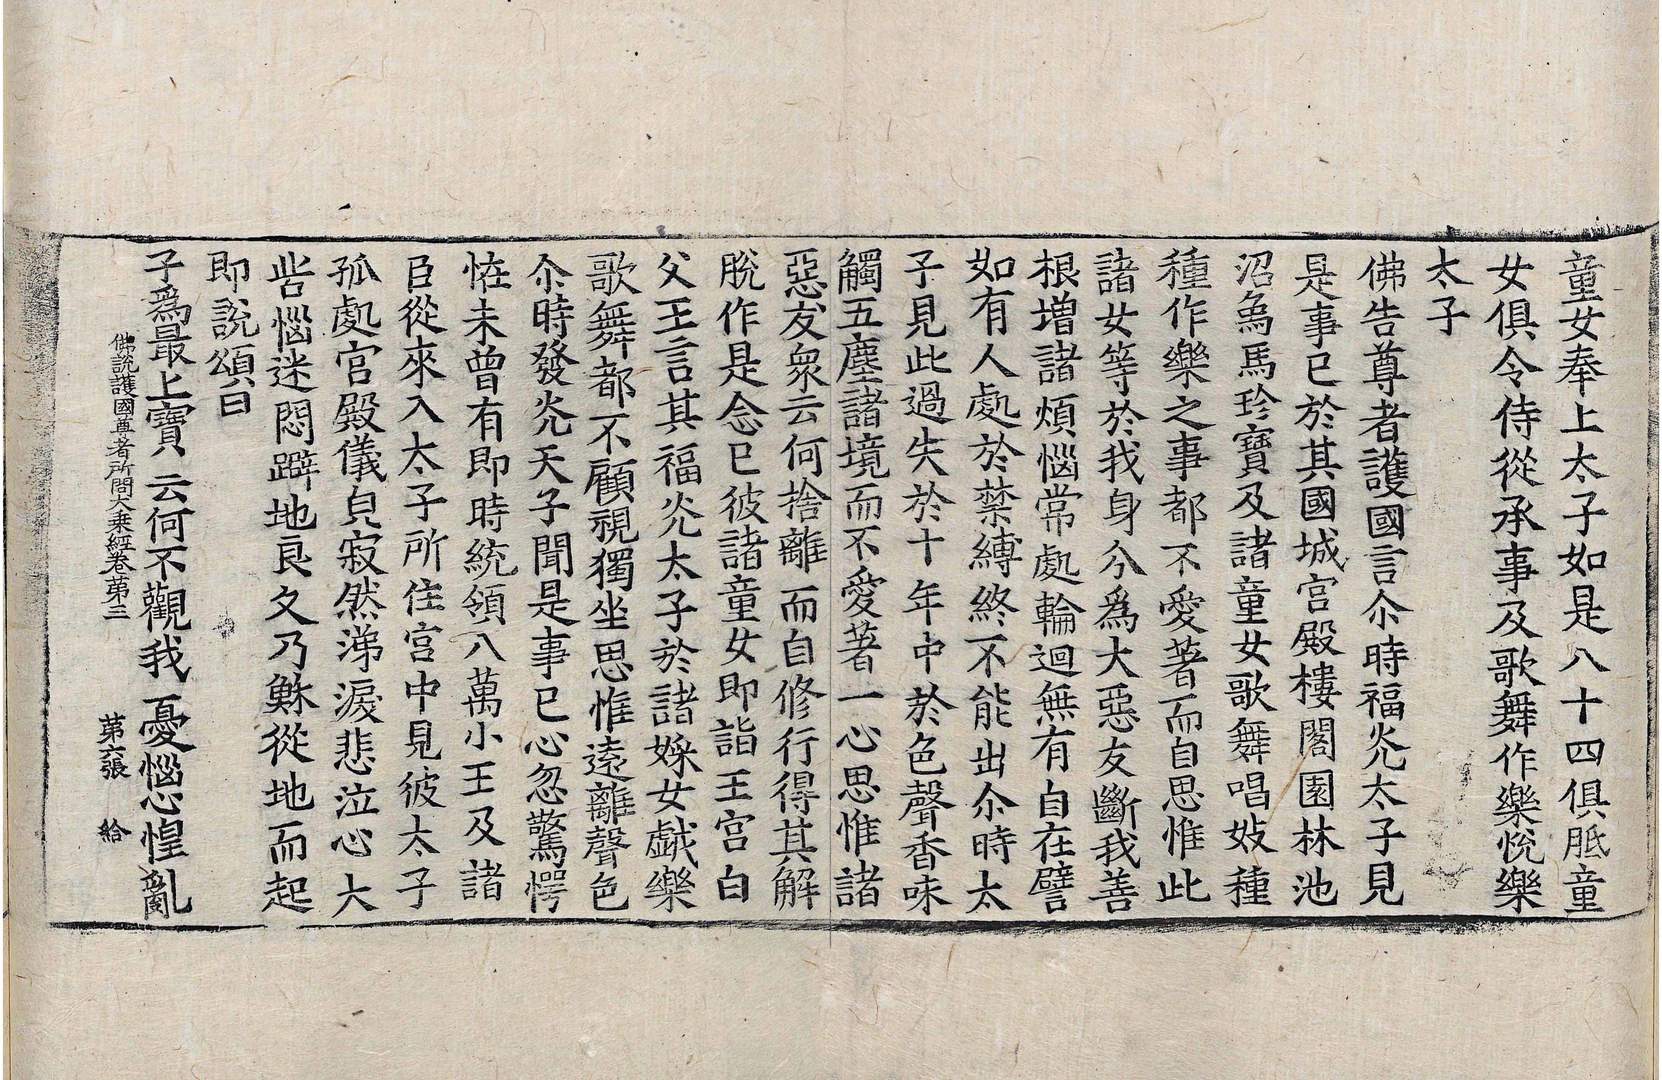 童女奉上太子如是八十四俱胝童
女俱令侍從承事及歌舞作樂悅樂
太子
佛告尊者護國言尒時福光太子見
是事已於其國城宮殿樓閣園林池
沼象馬珍寶及諸童女歌舞唱妓種
種作樂之事都不愛著而自思惟此
諸女等於我身分爲大惡友斷我善
根増諸煩惱常處輪迴無有自在譬
如有人處於禁縛終不能出尒時太
子見此過失於十年中於色聲香味
觸五塵諸境而不愛著一心思惟諸
惡友衆云何捨離而自修行得其解
脫作是念已彼諸童女即詣王宮白
父王言其福光太子於諸婇女戱樂
歌舞都不顧視獨坐思惟遠離聲色
尒時發光天子聞是事已心忽驚愕
恠未曾有即時統領八萬小王及諸
臣從來入太子所住宮中見彼太子
孤處宮殿儀皃寂然涕淚悲泣心大
呰惱迷悶躃地良久乃穌從地而起
即說頌曰
子爲最上寶 云何不觀我 憂惱心惶亂
佛說護國尊者所問大乗經卷苐三 苐六張 給